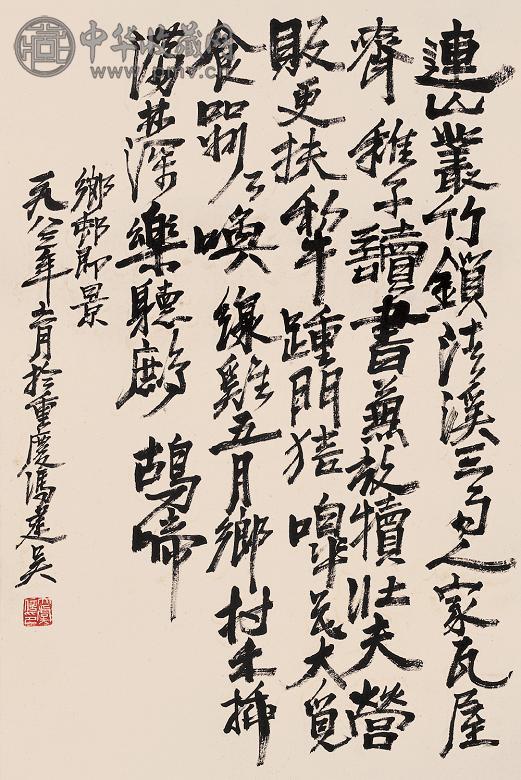 連山叢竹鎖清溪三兩人家瓦屋
齊稚子讀書兼放犢壯夫營
販更扶犂踵門狺嘷花犬覓
食喌々喚線雞五月鄉村禾插
滿林深樂聽鷓鴣啼
鄉邨即景
一九八二年五月於重慶馮建吳
中华收藏网